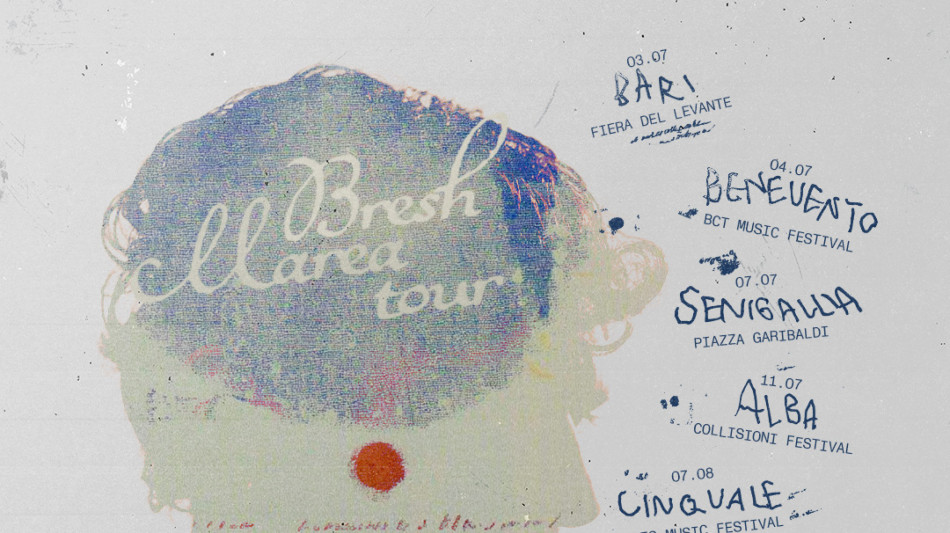 Bresh
Marea
tour
03.07
BARI
FIERA DEL LEVANTE
04.07
BENEVENTO
BCT MUSIC FESTIVAL
07.07
SENIGALLIA
PIAZZA GARIBALDI
11.07
ALBA
COLLISIONI FESTIVAL
07.08
CINQUALE
MUSIC FESTIVAL